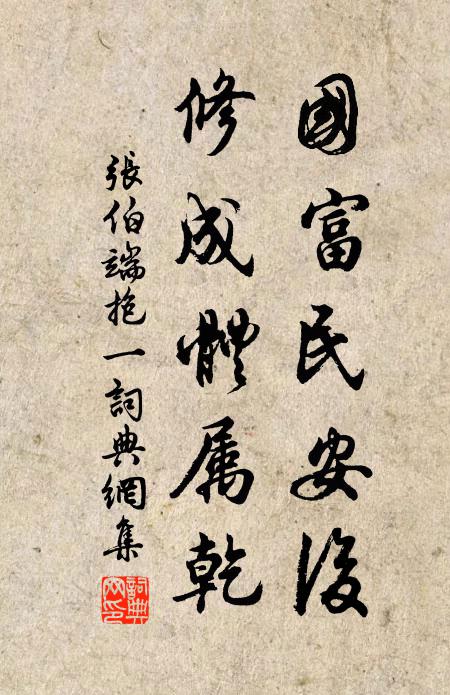 國富民安後
修成體属乾
張伯端抱一詞典網集
詞典网印